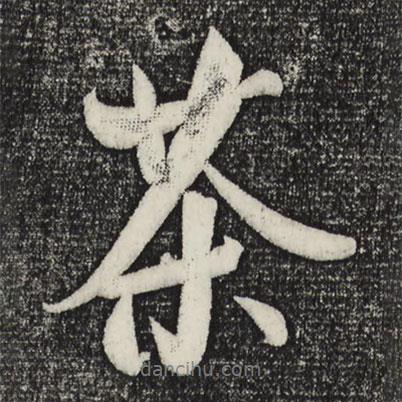 茶
dancihu.com